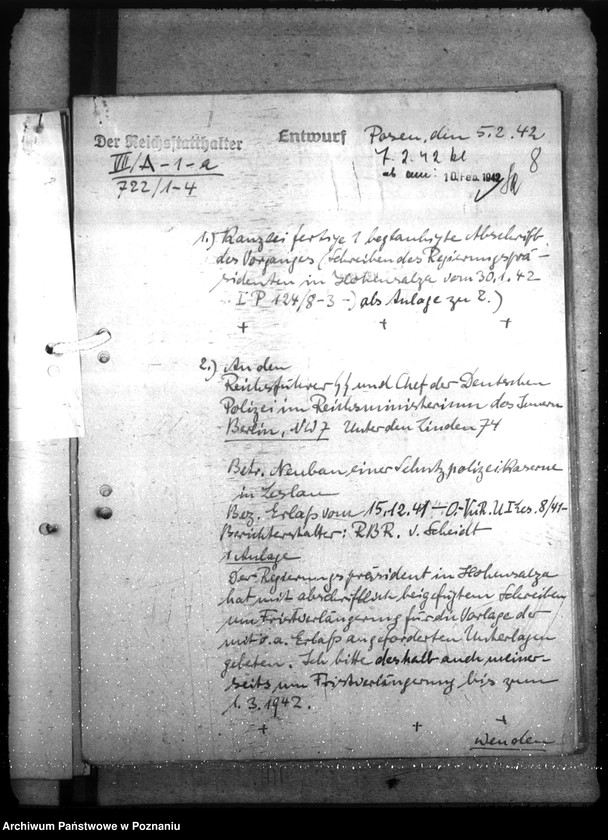 Der Reichsstatthalter Entwurf Posen, den 5.2.42
VII/A-1-a 7.2.42 kl 8
722/1-4 ab am: 10. Feb. 1942
1.) Kanzlei fertige 1 beglaubigte Abschrift
des Vorganges (Schreiben des Regierungsprä-
sidenten in Hohensalza vom 30.1.42
I P 124/8-3 -) als Anlage zu 2.)
+ + +
2.) An den
Reichsführer SS und Chef der Deutschen
Polizei im Reichsministerium des Innern
Berlin, NW 7 Unter den Linden 74
Betr. Neubau einer Schutzpolizeikaserne
in Leslau
Bez. Erlaß vom 15.12.41 - O.-VuR. 8/41-
Berichterstatter: RBR. v. Scheidt
1 Anlage
Der Regierungspräsident in Hohensalza
hat mit abschriftlich beigefügtem Schreiben
um Fristverlängerung für die Vorlage der
mit o.a. Erlaß angeforderten Unterlagen
gebeten. Ich bitte deshalb auch meiner-
seits um Fristverlängerung bis zum
1.3.1942.
+ + +
wenden
Archiwum Państwowe w Poznaniu